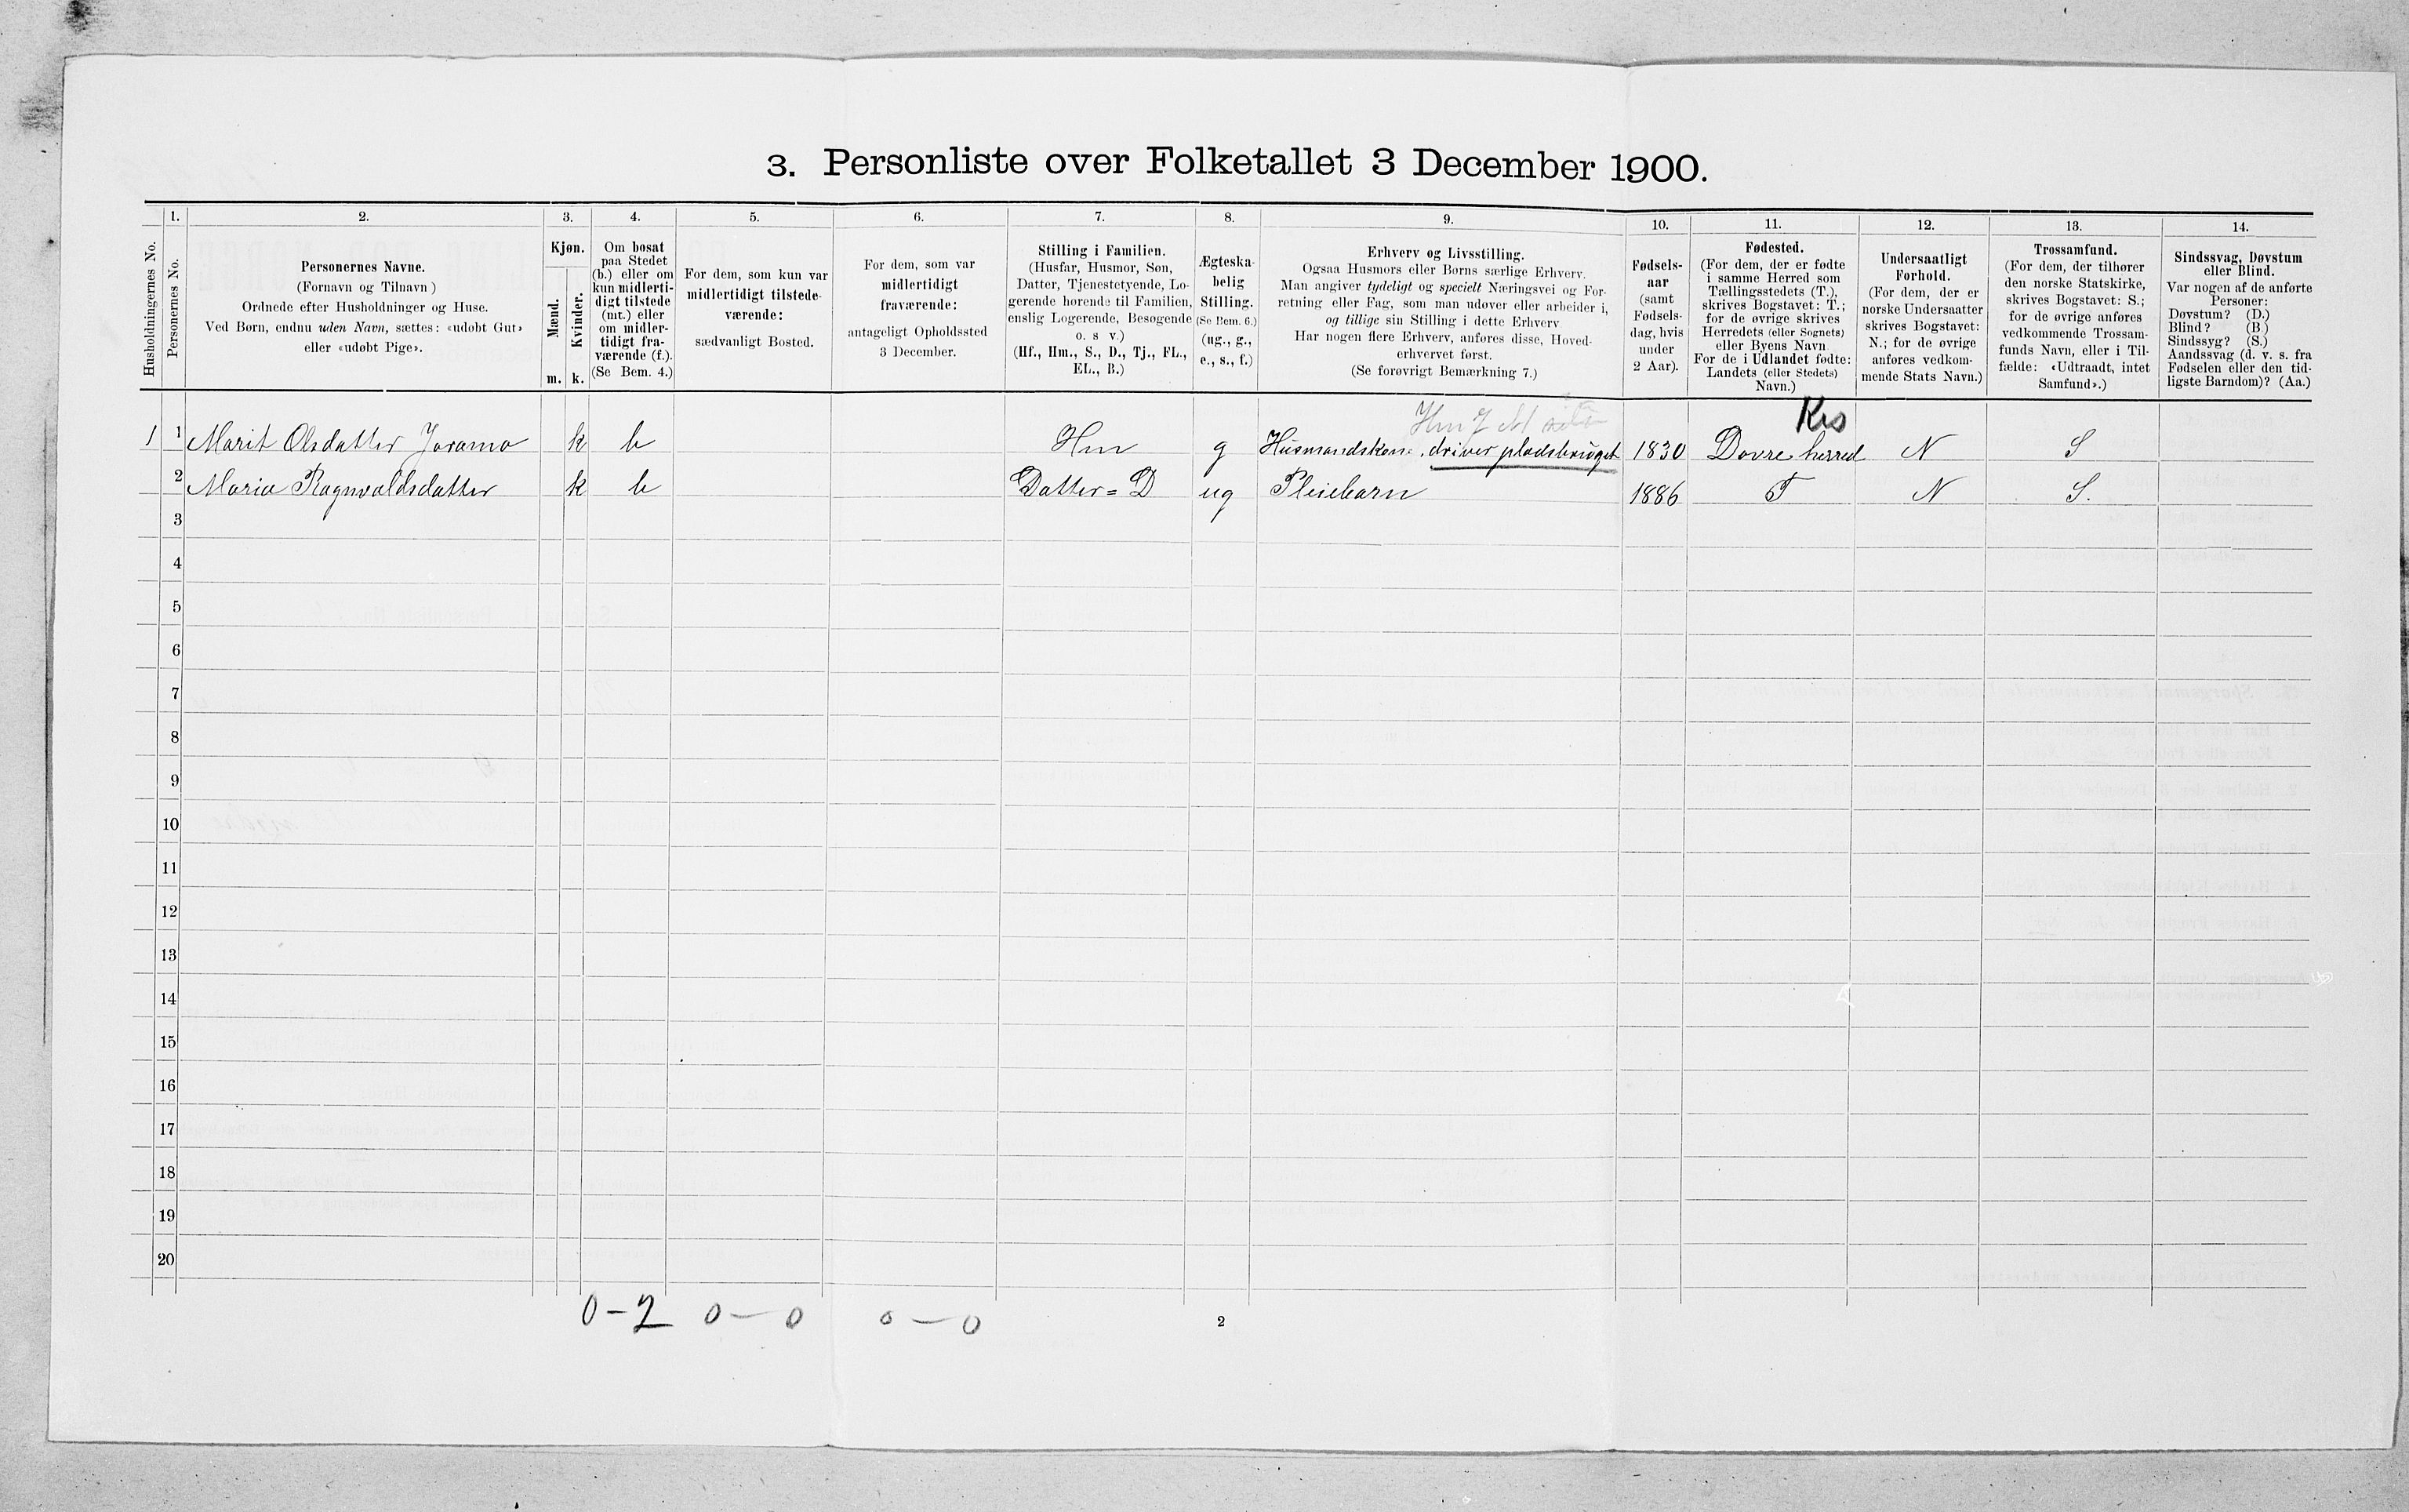 3. Personliste over Folketallet 3 December 1900.
1. 2. 3. 4. 5. 6. 7. 8. 9. 10. 11. 12. 13. 14.
Husholdningernes No.
Personernes No.
Personernes Navne.
(Fornavn og Tilnavn)
Ordnede efter Husholdninger og Huse.
Ved Børn, endnu uden Navn, sættes: «udøbt Gut»
eller «udøbt Pige».
Kjøn.
Mænd.
Kvinder.
m. k.
Om bosat
paa Stedet
(b.) eller om
kun midlerti-
digt tilstede
(mt.) eller
om midler-
tidigt fra-
værende (f.).
(Se Bem. 4.)
For dem, som kun var
midlertidigt tilstede-
værende:
sædvanligt Bosted.
For dem, som var
midlertidigt
fraværende:
antageligt Opholdssted
3 December.
Stilling i Familien.
(Husfar, Husmor, Søn,
Datter, Tjenestetyende, Lo-
gerende hørende til Familien,
enslig Logerende, Besøgende
o. s v.)
(Hf., Hm., S., D., Tj., FL.,
EL., B.)
Ægteska-
belig
Stilling.
(Se Bem. 6.)
(ug., g.,
e., s., f.)
Erhverv og Livsstilling.
Ogsaa Husmors eller Børns særlige Erhverv.
Man angiver tydeligt og specielt Næringsvei og For-
retning eller Fag, som man udøver eller arbeider i,
og tillige sin Stilling i dette Erhverv
Har nogen flere Erhverv, anføres disse, Hoved-
erhvervet først.
(Se forøvrigt Bemærkning 7.)
Fødsels-
aar
(samt
Fødsels-
dag, hvis
under
2 Aar).
Fødested.
(For dem, der er fødte
i samme Herred som
Tællingsstedets (T.),
skrives Bogstavet: T.;
for de øvrige skrives
Herredets (eller Sognets)
eller Byens Navn
For de i Udlandet fødte:
Landets (eller Stedets)
Navn.)
Undersaatligt
Forhold.
(For dem, der er
norske Undersaatter
skrives Bogstavet:
N.; for de øvrige
anføres vedkom-
mende Stats Navn.)
Trossamfund.
(For dem, der tilhører
den norske Statskirke,
skrives Bogstavet: S.;
for de øvrige anføres
vedkommende Trossam-
funds Navn, eller i Til-
fælde: «Udtraadt, intet
Samfund».)
Sindssvag, Døvstum
eller Blind.
Var nogen af de anførte
Personer:
Døvstum? (D.)
Blind? (B.)
Sindssyg? (S.)
Aandssvag (d. v. s. fra
Fødselen eller den tid-
ligste Barndom)? (Aa.)
Krs
1 1 Marit Olsdatter Joramo k b Hm g Husmandskone, driver pladsbruget 1830 Dovre herred N S
2 Maria Ragnvaldsdatter k b Datter = D ug Pleiebarn 1886 T N S.
3
4
5
6
7
8
9
10
11
12
13
14
15
16
17
18
19
20
0 – 2 0 – 0 0 – 0
2